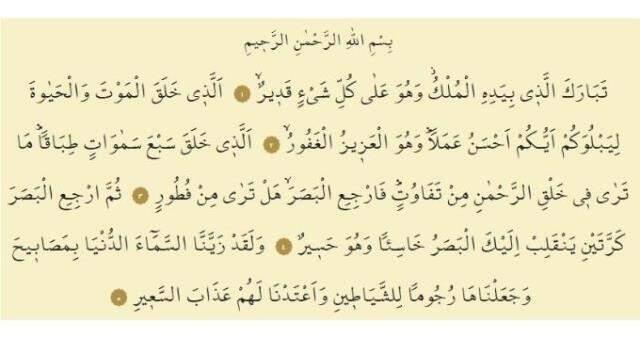 بِسْمِ اللهِ الرَّحْمٰنِ الرَّح۪يمِ
تَبَارَكَ الَّذ۪ي بِيَدِهِ الْمُلْكُۘ وَهُوَ عَلٰى كُلِّ شَيْءٍ قَد۪يرٌۙ ١ اَلَّذ۪ي خَلَقَ الْمَوْتَ وَالْحَيٰوةَ
لِيَبْلُوَكُمْ اَيُّكُمْ اَحْسَنُ عَمَلًاۜ وَهُوَ الْعَز۪يزُ الْغَفُورُۙ ٢ اَلَّذ۪ي خَلَقَ سَبْعَ سَمٰوَاتٍ طِبَاقًاۜ مَا
تَرٰى ف۪ي خَلْقِ الرَّحْمٰنِ مِنْ تَفَاوُتٍۜ فَارْجِعِ الْبَصَرَۙ هَلْ تَرٰى مِنْ فُطُورٍ ٣ ثُمَّ ارْجِعِ الْبَصَرَ
كَرَّتَيْنِ يَنْقَلِبْ اِلَيْكَ الْبَصَرُ خَاسِئًا وَهُوَ حَس۪يرٌ ٤ وَلَقَدْ زَيَّنَّا السَّمَٓاءَ الدُّنْيَا بِمَصَاب۪يحَ
وَجَعَلْنَاهَا رُجُومًا لِلشَّيَاط۪ينِ وَاَعْتَدْنَا لَهُمْ عَذَابَ السَّع۪يرِ ٥